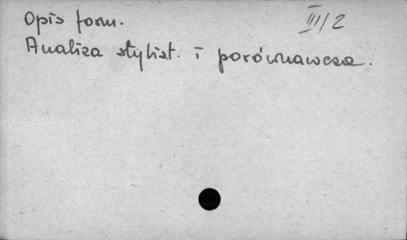 Opis form.
III/2
Analiza stylist. i porównawcza.